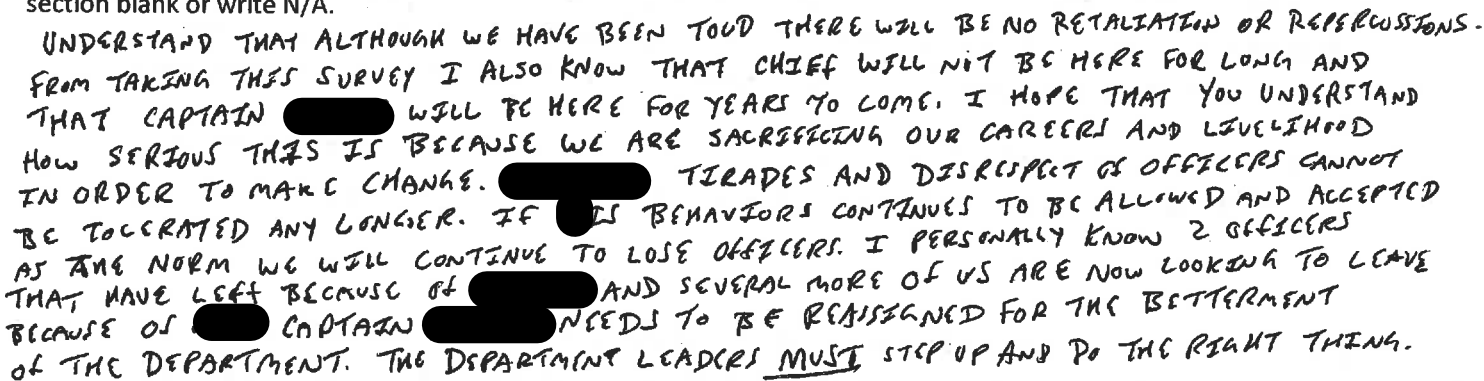 section blank or write N/A.
UNDERSTAND THAT ALTHOUGH WE HAVE BEEN TOLD THERE WILL BE NO RETALIATION OR REPERCUSSIONS.
FROM TAKING THIS SURVEY I ALSO KNOW THAT CHIEF WILL NOT BE HERE FOR LONG AND
THAT CAPTAIN WILL BE HERE FOR YEARS TO COME. I HOPE THAT YOU UNDERSTAND
HOW SERIOUS THIS IS BECAUSE WE ARE SACRIFICING OUR CAREERS AND LIVELIHOOD
IN ORDER TO MAKE CHANGE. TIRADES AND DISRESPECT OF OFFICERS CANNOT
BE TOLERATED ANY LONGER. IF IS BEHAVIORS CONTINUES TO BE ALLOWED AND ACCEPTED
AS THE NORM WE WILL CONTINUE TO LOSE OFFICERS. I PERSONALLY KNOW 2 OFFICERS
THAT HAVE LEFT BECAUSE OF AND SEVERAL MORE OF US ARE NOW LOOKING TO LEAVE
BECAUSE OF CAPTAIN NEEDS TO BE REASSIGNED FOR THE BETTERMENT
OF THE DEPARTMENT. THE DEPARTMENT LEADERS MUST STEP UP AND DO THE RIGHT THING.